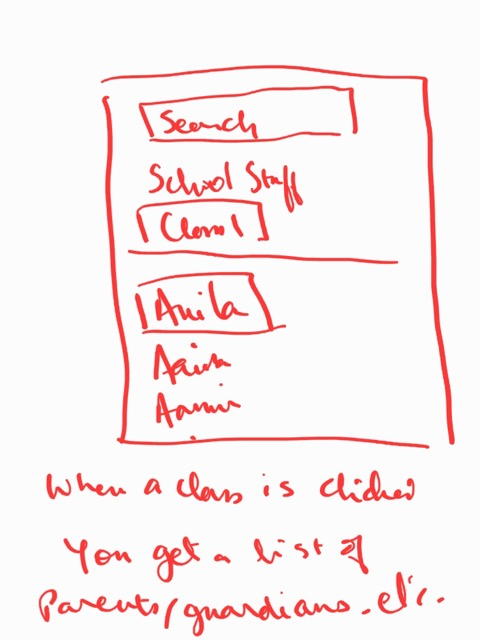 Search
School Staff
Class 1
Anita
Aamir
When a class is clicked
You get a list of
Parents/guardians. etc.